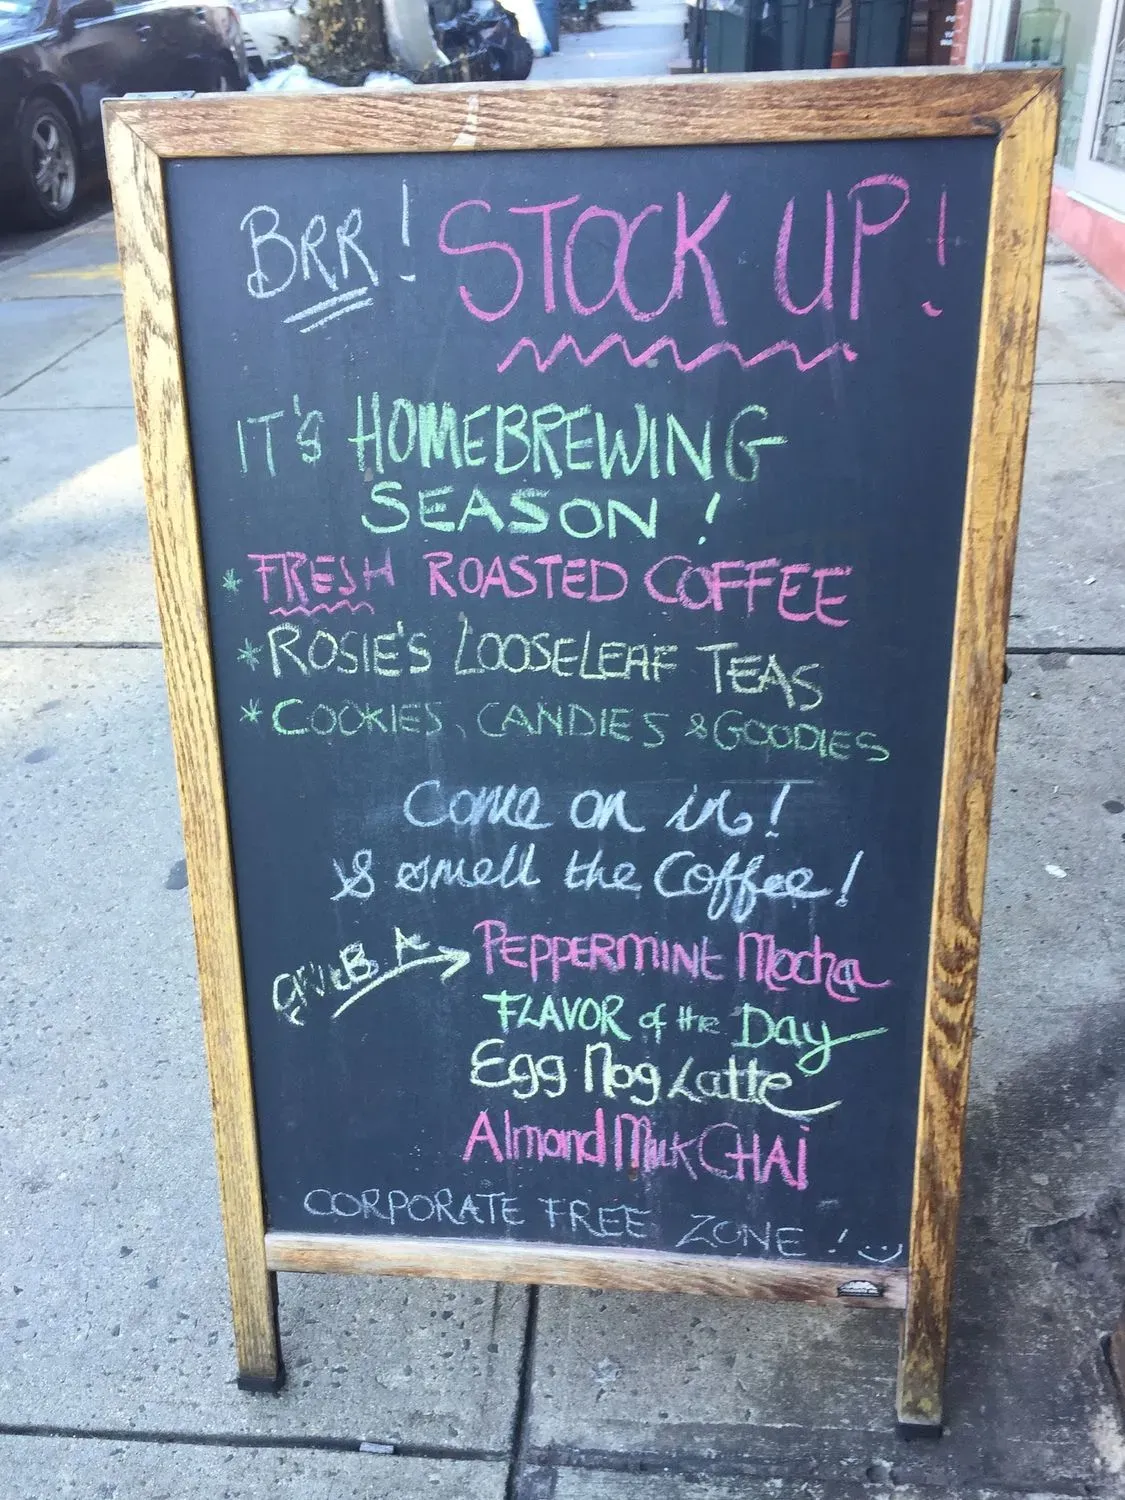 BRR! STOCK UP!
IT'S HOMEBREWING
SEASON!
* FRESH ROASTED COFFEE
* ROSIE'S LOOSELEAF TEAS
* COOKIES, CANDIES & GOODIES
Come on in!
& smell the Coffee!
GRAB A → PEPPERMINT Mocha
FLAVOR of the Day
Egg Nog Latte
Almond Milk CHAI
CORPORATE FREE ZONE!